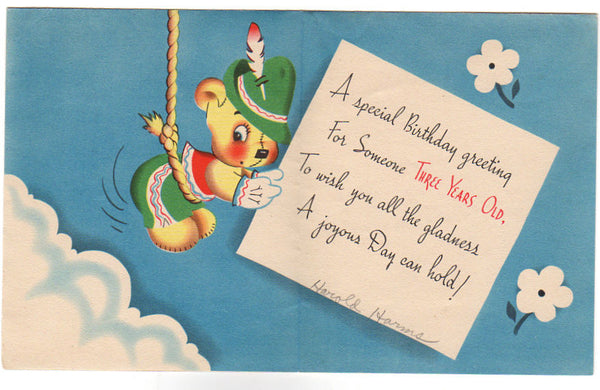 A special Birthday greeting
For Someone Three Years Old,
To wish you all the gladness
A joyous Day can hold!
Harold Harms